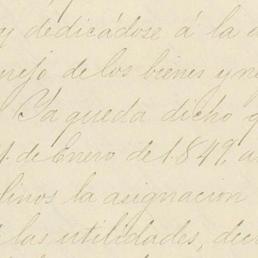 y dedicádose á la
nejo de los bienes y ne
Ya queda dicho q
1. de Enero de 1.849, a
linos la asignacion
las utilidades, dec